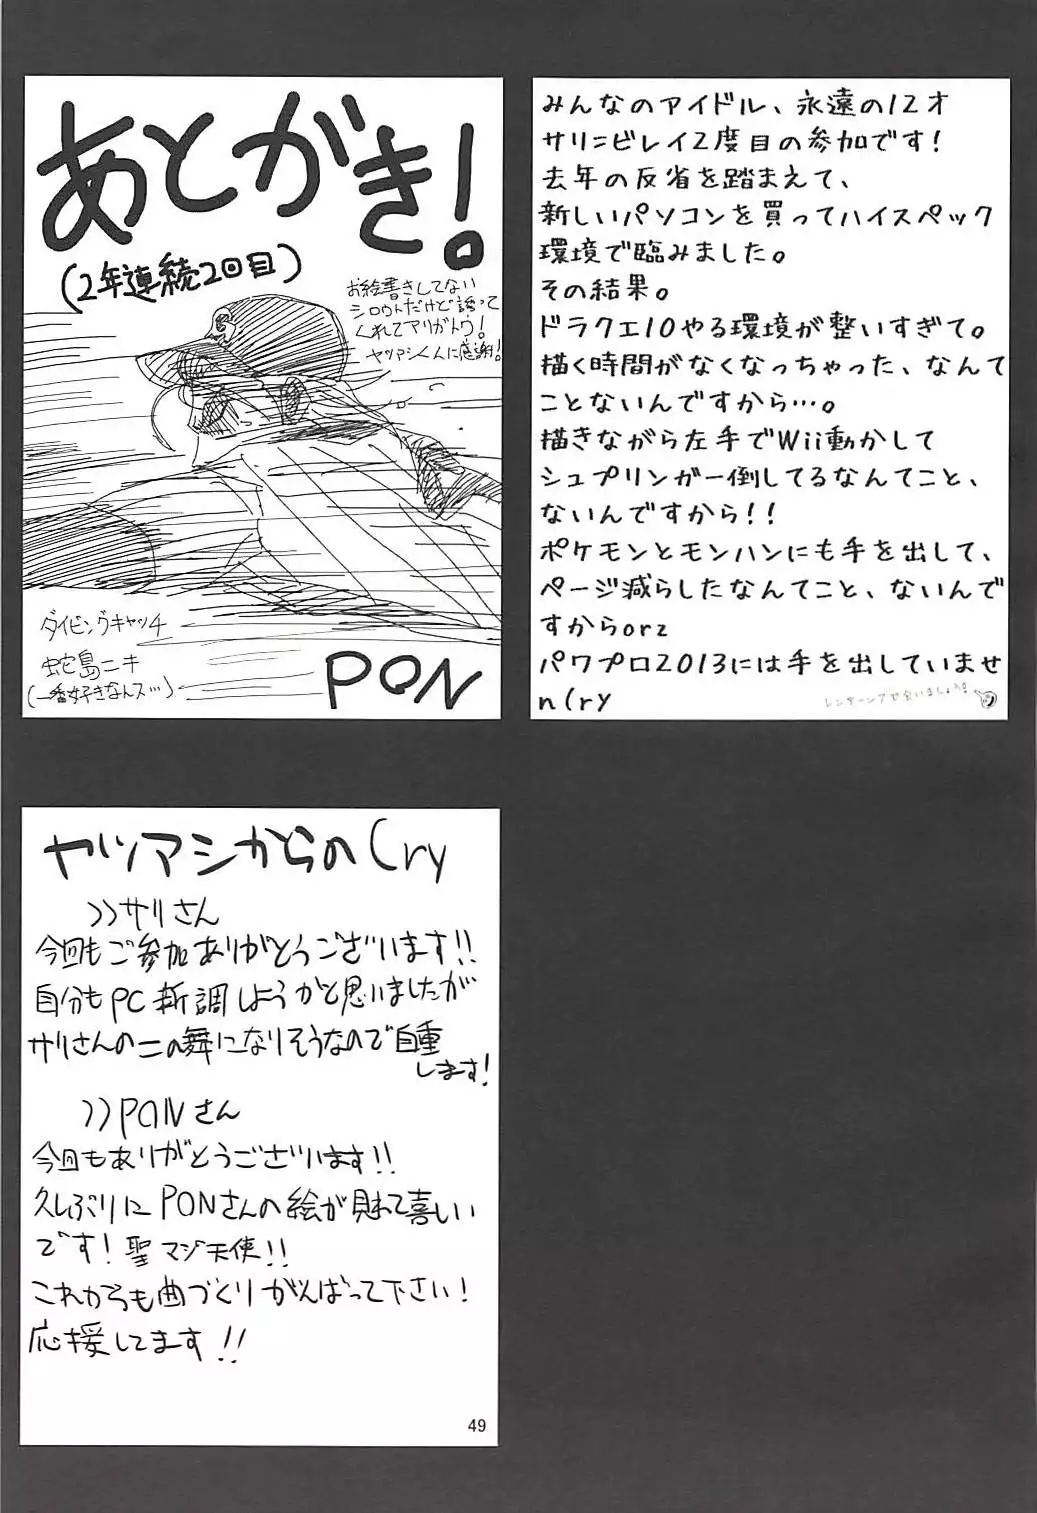 みんなのアイドル、永遠の12才
サリ=ビレイ2度目の参加です!
去年の反省を踏まえて、
新しいパソコンを買ってハイスペック
環境で臨みました。
その結果。
ドラクエ10やる環境が整いすぎて。
描く時間がなくなっちゃった、なんて
ことないんですから…。
描きながら左手でWii動かして
シュプリンガー倒してるなんてこと、
ないんですから!!
ポケモンとモンハンにも手を出して、
ページ減らしたなんてこと、ないんで
すからorz
パワプロ2013には手を出していませ
n(ry
あとがき!
(2年連続2回目)
お絵書きしてない
シロウトだけど誘って
くれてアリガトウ!
ヤツアシくんに感謝!
ダイビングキャッチ
蛇島ニキ
(一番好きなんス…)
PON
ヤツアシからの(ry
>>サリさん
今回もご参加ありがとうございます!!
自分もPC新調しようかと思いましたが
サリさんの二の舞になりそうなので自重
します!
>>PONさん
今回もありがとうございます!!
久しぶりにPONさんの絵が見れて喜しい
です!聖マジ天使!!
これからも曲づくりがんばって下さい!
応援してます!!
49